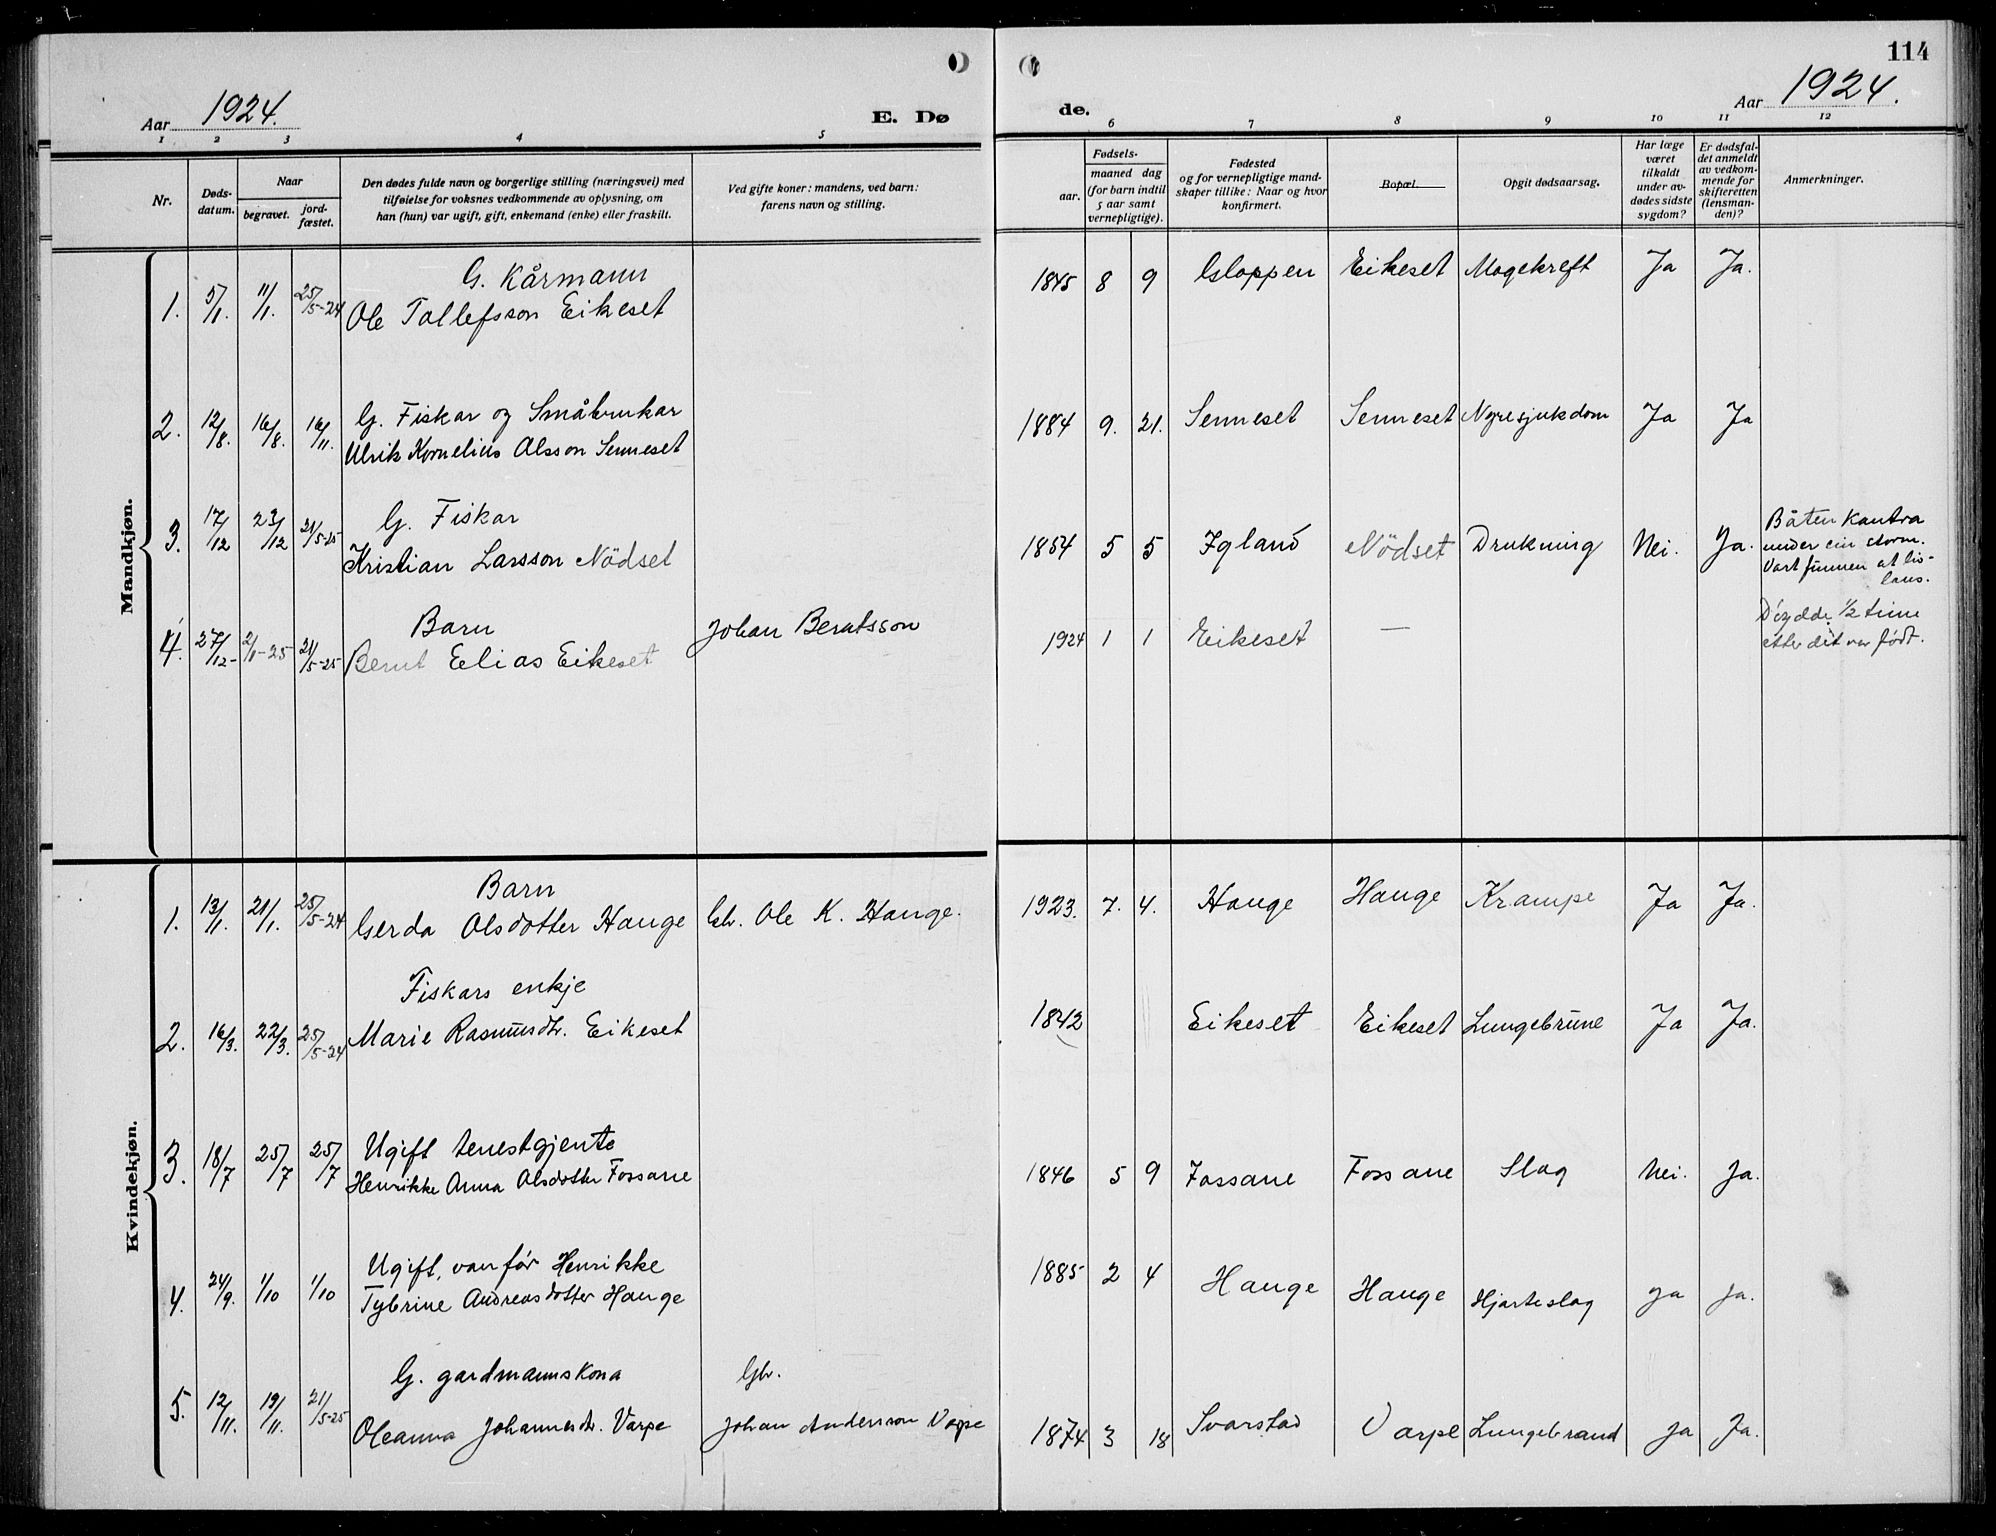 114
Aar 1924.
E. Dø
de.
Aar 1924.
1 2 3 4 5 6 7 8 9 10 11 12
Nr.
Døds-
datum.
Naar
begravet.
jord-
fæstet.
Den dødes fulde navn og borgerlige stilling (næringsvei) med
tilføielse for voksnes vedkommende av oplysning, om
han (hun) var ugift, gift, enkemand (enke) eller fraskilt.
Ved gifte koner: mandens, ved barn:
farens navn og stilling.
Fødsels-
aar.
maaned dag
(for barn indtil
5 aar samt
vernepligtige).
Fødested
og for vernepligtige mand-
skaper tillike: Naar og hvor
konfirmert.
Bopæl.
Opgit dødsaarsag.
Har læge
været
tilkaldt
under av-
dødes sidste
sygdom?
Er dødsfal-
det anmeldt
av vedkom-
mende for
skifteretten
(lensman-
den)?
Anmerkninger.
Mandkjøn.
G. Kårmann
1. 5/1. 11/1. 25/5-24 Ole Tollefsson Eikeset 1845 8 9 Gloppen Eikeset Magekreft Ja Ja.
G. Fiskar og Småbrukar
2. 12/8. 16/8. 16/11. Ulrik Kornelius Olsson Senneset 1884 9. 21. Senneset Senneset Nyresjukdom Ja Ja
G. Fiskar
3. 17/12 23/12 21/5-25 Kristian Larsson Nödset 1854 5 5 Igland Nödset Drukning Nei. Ja.
Båten kantra
under ein storm.
Vart funnen at liv-
laus.
Barn
4. 27/12- 2/1-25 21/5-25 Bernt Eelias Eikeset Johan Berntsson 1924 1 1 Eikeset —
Döydde 1/2 time
etter det var födt.
Kvindekjøn.
Barn
1. 13/1. 21/1. 25/5-24 Gerda Olsdotter Hauge Gb. Ole K. Hauge. 1923. 7. 4. Hauge Hauge Krampe Ja Ja.
Fiskars enkje
2. 16/3. 22/3. 25/5-24 Marie Rasmusdtr. Eikeset 1842 Eikeset Eikeset Lungebrune Ja Ja.
Ugift tenestgjente
3. 18/7 25/7 25/7 Henrikke Anna Olsdotter Fossane 1846 5 9 Fossane Fossane Slag Nei. Ja.
Ugift, vanför Henrikke
4. 24/9. 1/10 1/10 Tybrine Andreasdotter Hauge 1885 2 4 Hauge Hauge Hjarteslag ja ja.
G. gardmannskona Gb.
5. 12/11. 19/11. 21/5-25 Oleanna Johannesdtr. Varpe Johan Andersson Varpe 1874 3 18 Svarstad Varpe Lungebrand ja Ja.